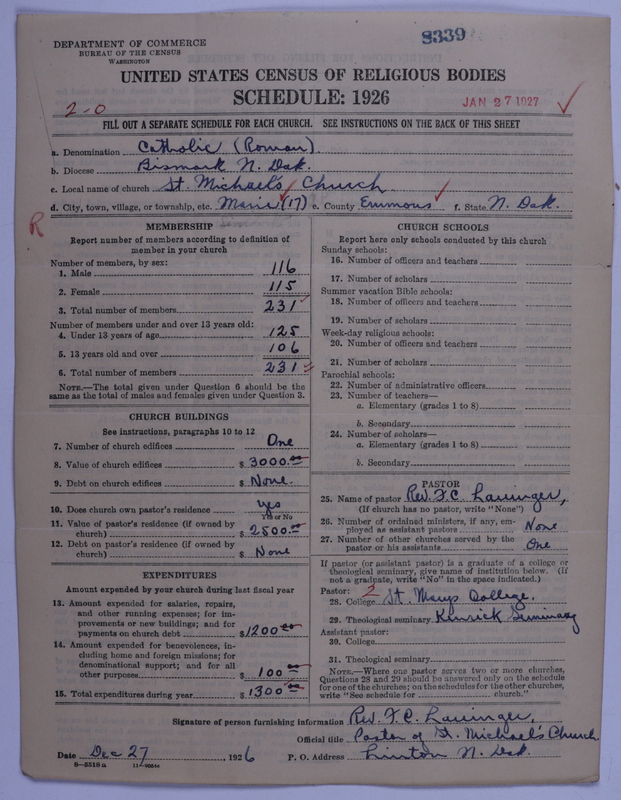 8339
DEPARTMENT OF COMMERCE
BUREAU OF THE CENSUS
WASHINGTON
UNITED STATES CENSUS OF RELIGIOUS BODIES
SCHEDULE: 1926
2-0
JAN 27 1927
FILL OUT A SEPARATE SCHEDULE FOR EACH CHURCH. SEE INSTRUCTIONS ON THE BACK OF THIS SHEET
a. Denomination Catholic (Roman)
b. Diocese Bismark N. Dak.
c. Local name of church St. Michael's Church
d. City, town, village, or township, etc. (17) e. County Emmons f. State N. Dak.
R
MEMBERSHIP
Report number of members according to definition of
member in your church
Number of members, by sex:
1. Male 116
2. Female 115
3. Total number of members 231
Number of members under and over 13 years old:
4. Under 13 years of age 125
5. 13 years old and over 106
6. Total number of members 231
NOTE.—The total given under Question 6 should be the
same as the total of males and females given under Question 3.
CHURCH BUILDINGS
See instructions, paragraphs 10 to 12
7. Number of church edifices One
8. Value of church edifices $ 3000.00
9. Debt on church edifices $ None.
10. Does church own pastor's residence yes
Yes or No
11. Value of pastor's residence (if owned by
church) $ 2500.00
12. Debt on pastor's residence (if owned by
church) $ None
EXPENDITURES
Amount expended by your church during last fiscal year
13. Amount expended for salaries, repairs,
and other running expenses; for im-
provements or new buildings; and for
payments on church debt $1200.00
14. Amount expended for benevolences, in-
cluding home and foreign missions; for
denominational support; and for all
other purposes $ 100.00
15. Total expenditures during year $1300.00
CHURCH SCHOOLS
Report here only schools conducted by this church
Sunday schools:
16. Number of officers and teachers
17. Number of scholars
Summer vacation Bible schools:
18. Number of officers and teachers
19. Number of scholars
Week-day religious schools:
20. Number of officers and teachers
21. Number of scholars
Parochial schools:
22. Number of administrative officers
23. Number of teachers—
a. Elementary (grades 1 to 8)
b. Secondary
24. Number of scholars—
a. Elementary (grades 1 to 8)
b. Secondary
PASTOR
25. Name of pastor Rev. F.C.
(If church has no pastor, write "None")
26. Number of ordained ministers, if any, em-
ployed as assistant pastors None
27. Number of other churches served by the
pastor or his assistants One
If pastor (or assistant pastor) is a graduate of a college or
theological seminary, give name of institution below. (If
not a graduate, write "No" in the space indicated.)
Pastor: 2
28. College St. Marys College.
29. Theological seminary Kenrick Seminary
Assistant pastor:
30. College
31. Theological seminary
NOTE.—Where one pastor serves two or more churches,
Questions 28 and 29 should be answered only on the schedule
for one of the churches; on the schedules for the other churches,
write "See schedule for church."
Signature of person furnishing information Rev. F.C.
Official title Pastor of St. Michael's Church
Date Dec 27, 1926 P. O. Address Linton N. Dak.
8-5518a